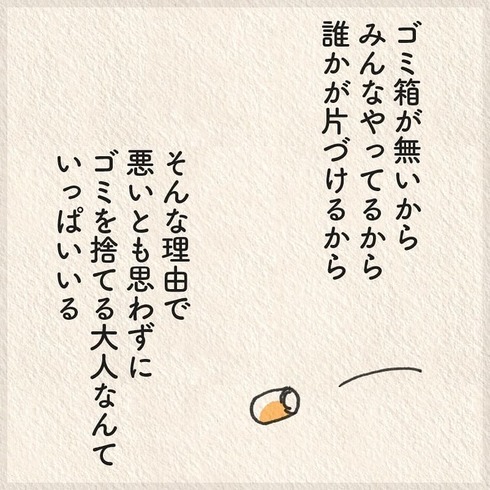 ゴミ箱が無いから
みんなやってるから
誰かが片づけるから
そんな理由で
悪いとも思わずに
ゴミを捨てる大人なんて
いっぱいいる